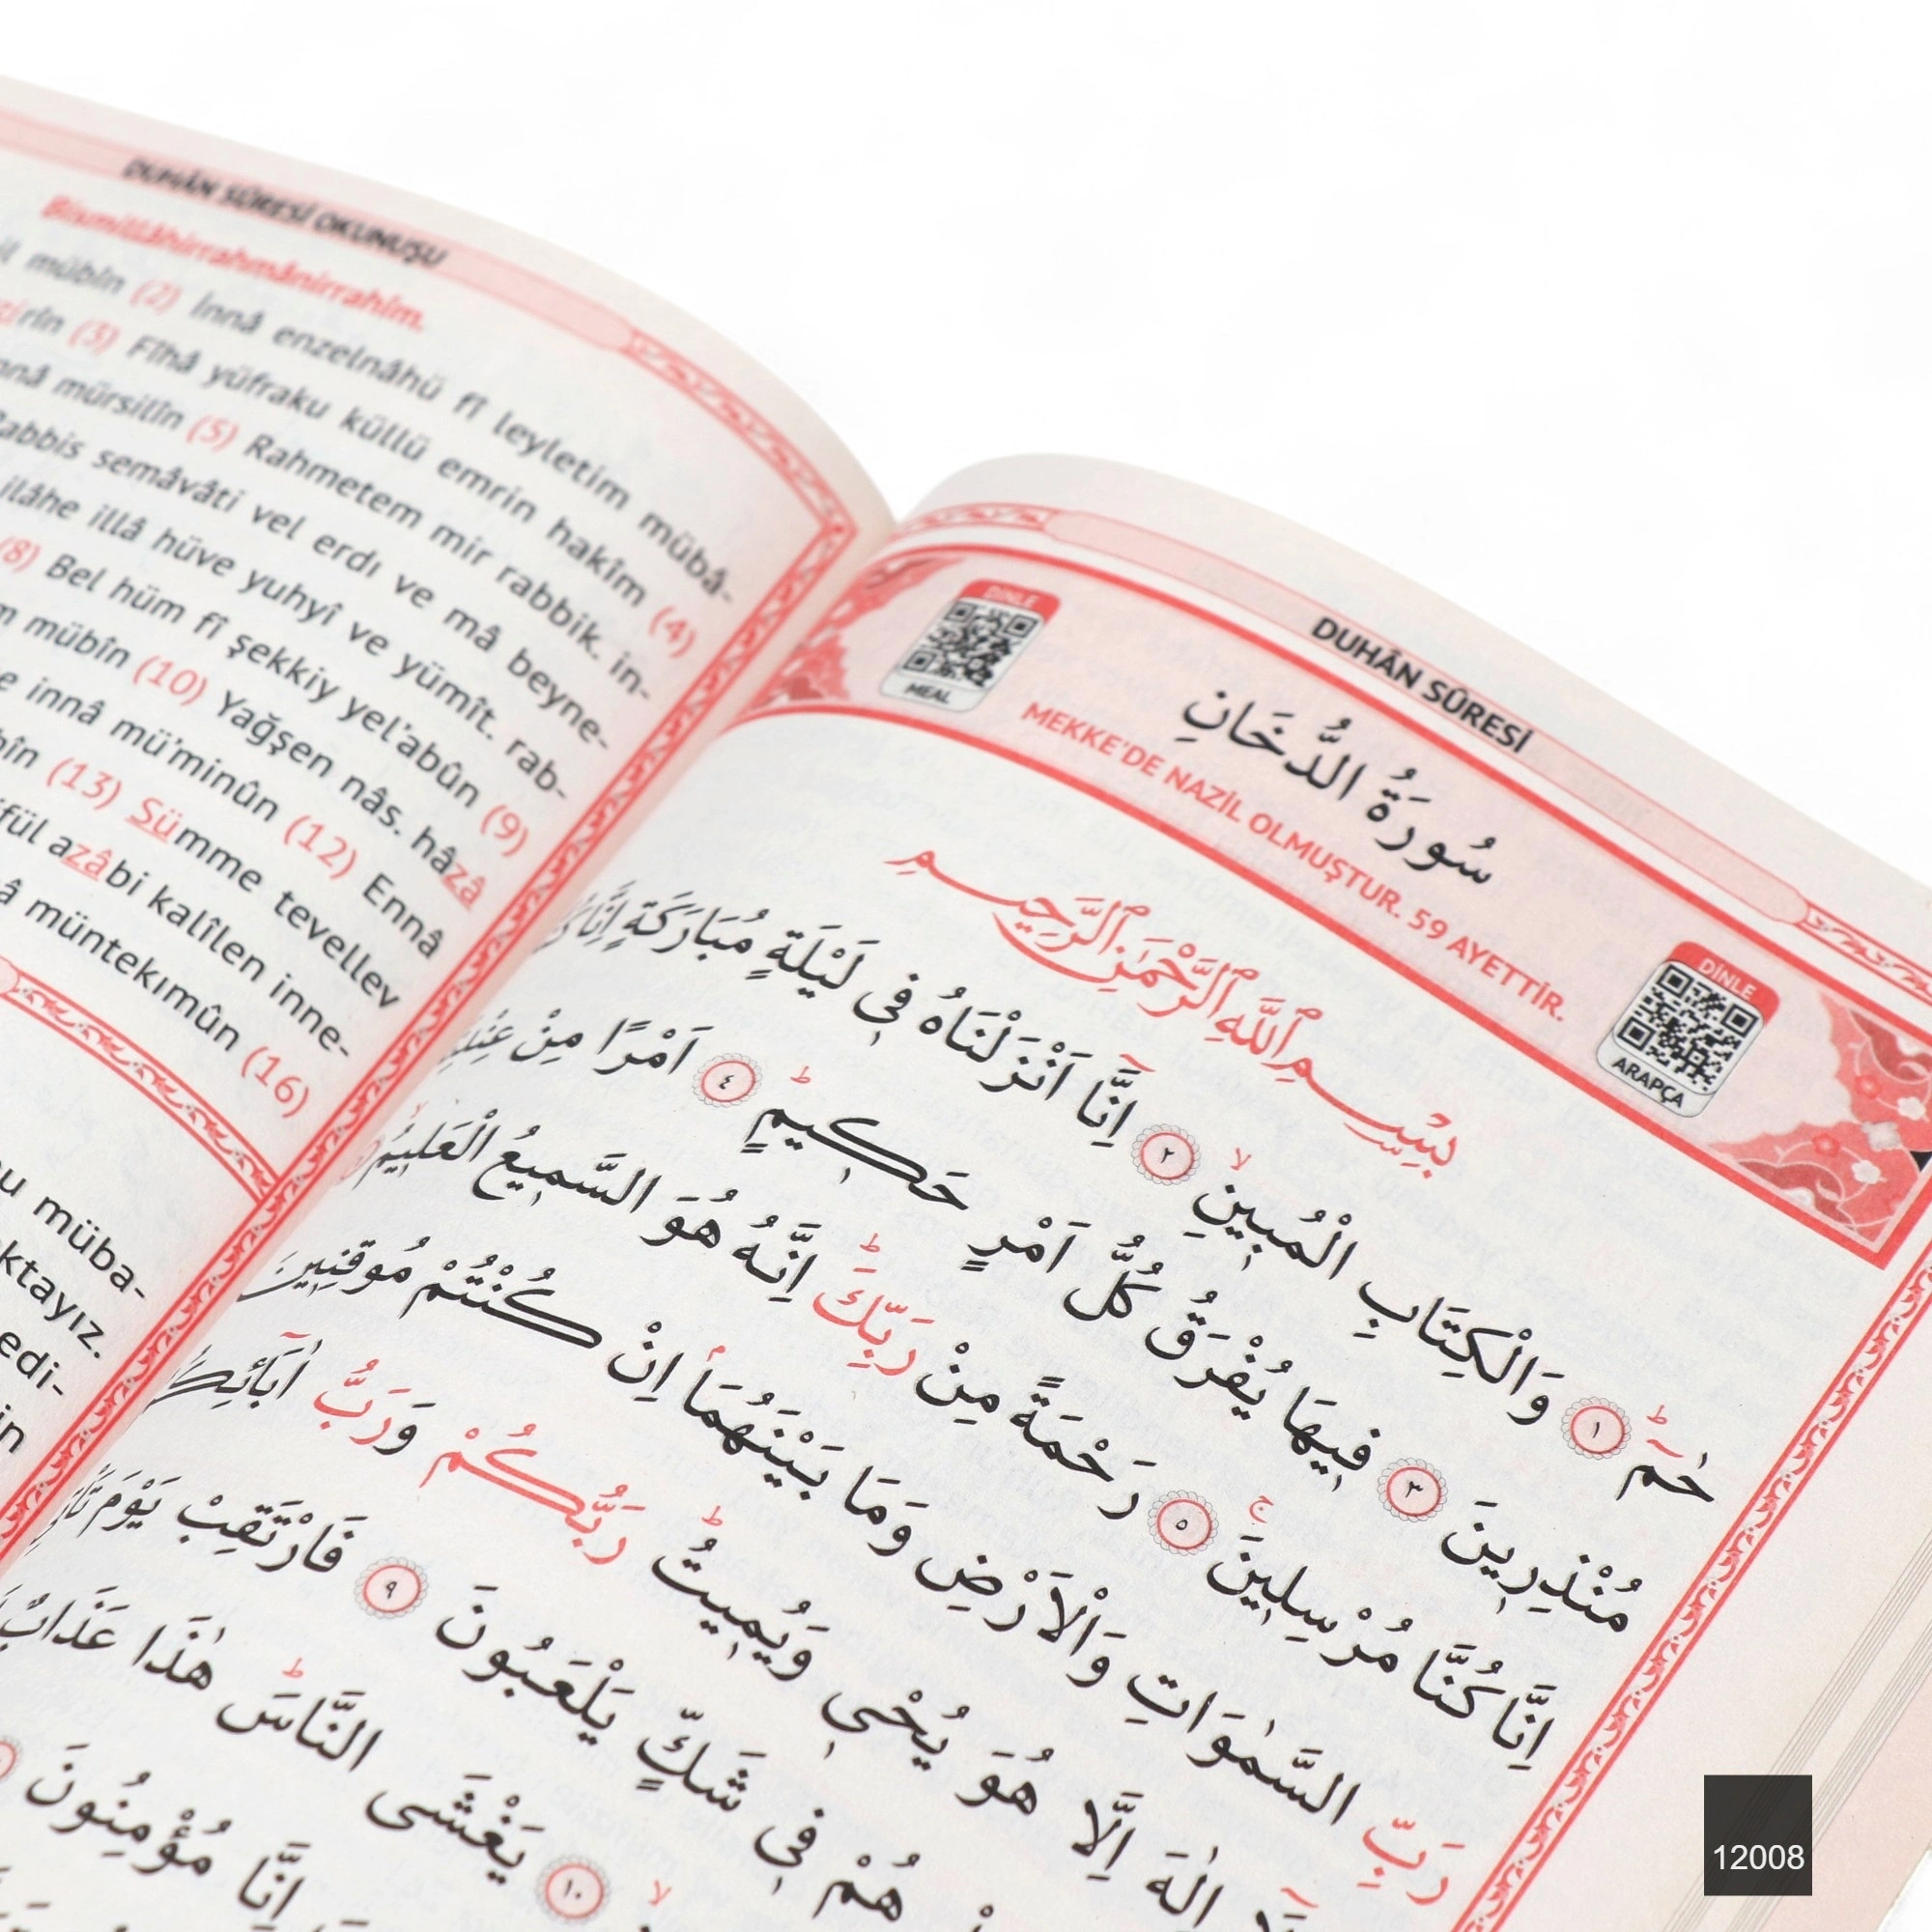 DUHÂN SÛRESİ OKUNUŞU
Bismillâhirrahmânirrahîm.
mübîn (2) İnnâ enzelnâhü fî leyletim mübâ-
rîn (3) Fîhâ yüfraku küllü emrin hakîm (4)
mürsilîn (5) Rahmetem mir rabbik. in-
semâvâti vel erdı ve mâ beyne-
ilâhe illâ hüve yuhyî ve yümît. rab-
(8) Bel hüm fî şekkiy yel'abûn (9)
mübîn (10) Yağşen nâs. hâzâ
innâ mü'minûn (12) Ennâ
(13) Sümme tevellev
azâbi kalîlen inne-
müntekımûn (16)
müba-
ktayız.
edi-
in
DUHÂN SÛRESİ
DİNLE
MEAL
سُورَةُ الدُّخَانِ
MEKKE'DE NAZİL OLMUŞTUR. 59 AYETTİR.
DİNLE
ARAPÇA
بِسْمِ اللّٰهِ الرَّحْمٰنِ الرَّحِيمِ
حٰمٓ ۜ ١ وَالْكِتَابِ الْمُبِينِۙ ٢ اِنَّٓا اَنْزَلْنَاهُ فِى لَيْلَةٍ مُبَارَكَةٍ اِنَّا
مُنْذِرِينَ ٣ فِيهَا يُفْرَقُ كُلُّ اَمْرٍ حَكِيمٍۜ ٤ اَمْرًا مِنْ
اِنَّا كُنَّا مُرْسِلِينَۚ ٥ رَحْمَةً مِنْ رَبِّكَۜ اِنَّهُ هُوَ السَّمِيعُ الْعَلِيمُۙ
رَبِّ السَّمٰوَاتِ وَالْاَرْضِ وَمَا بَيْنَهُمَاۢ اِنْ كُنْتُمْ مُوقِنِينَ
اِلٰهَ اِلَّا هُوَ يُحْيِى وَيُمِيتُۜ رَبُّكُمْ وَرَبُّ
هُمْ فِى شَكٍّ يَلْعَبُونَ ٩ فَارْتَقِبْ يَوْمَ
١٠ يَغْشَى النَّاسَۜ هٰذَا عَذَابٌ
اِنَّا مُؤْمِنُونَ
12008